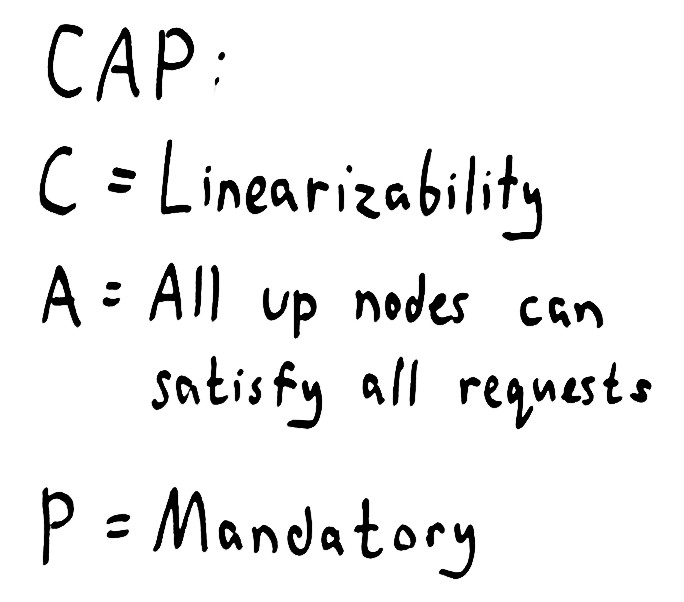 CAP:
C = Linearizability
A = All up nodes can
satisfy all requests
P = Mandatory